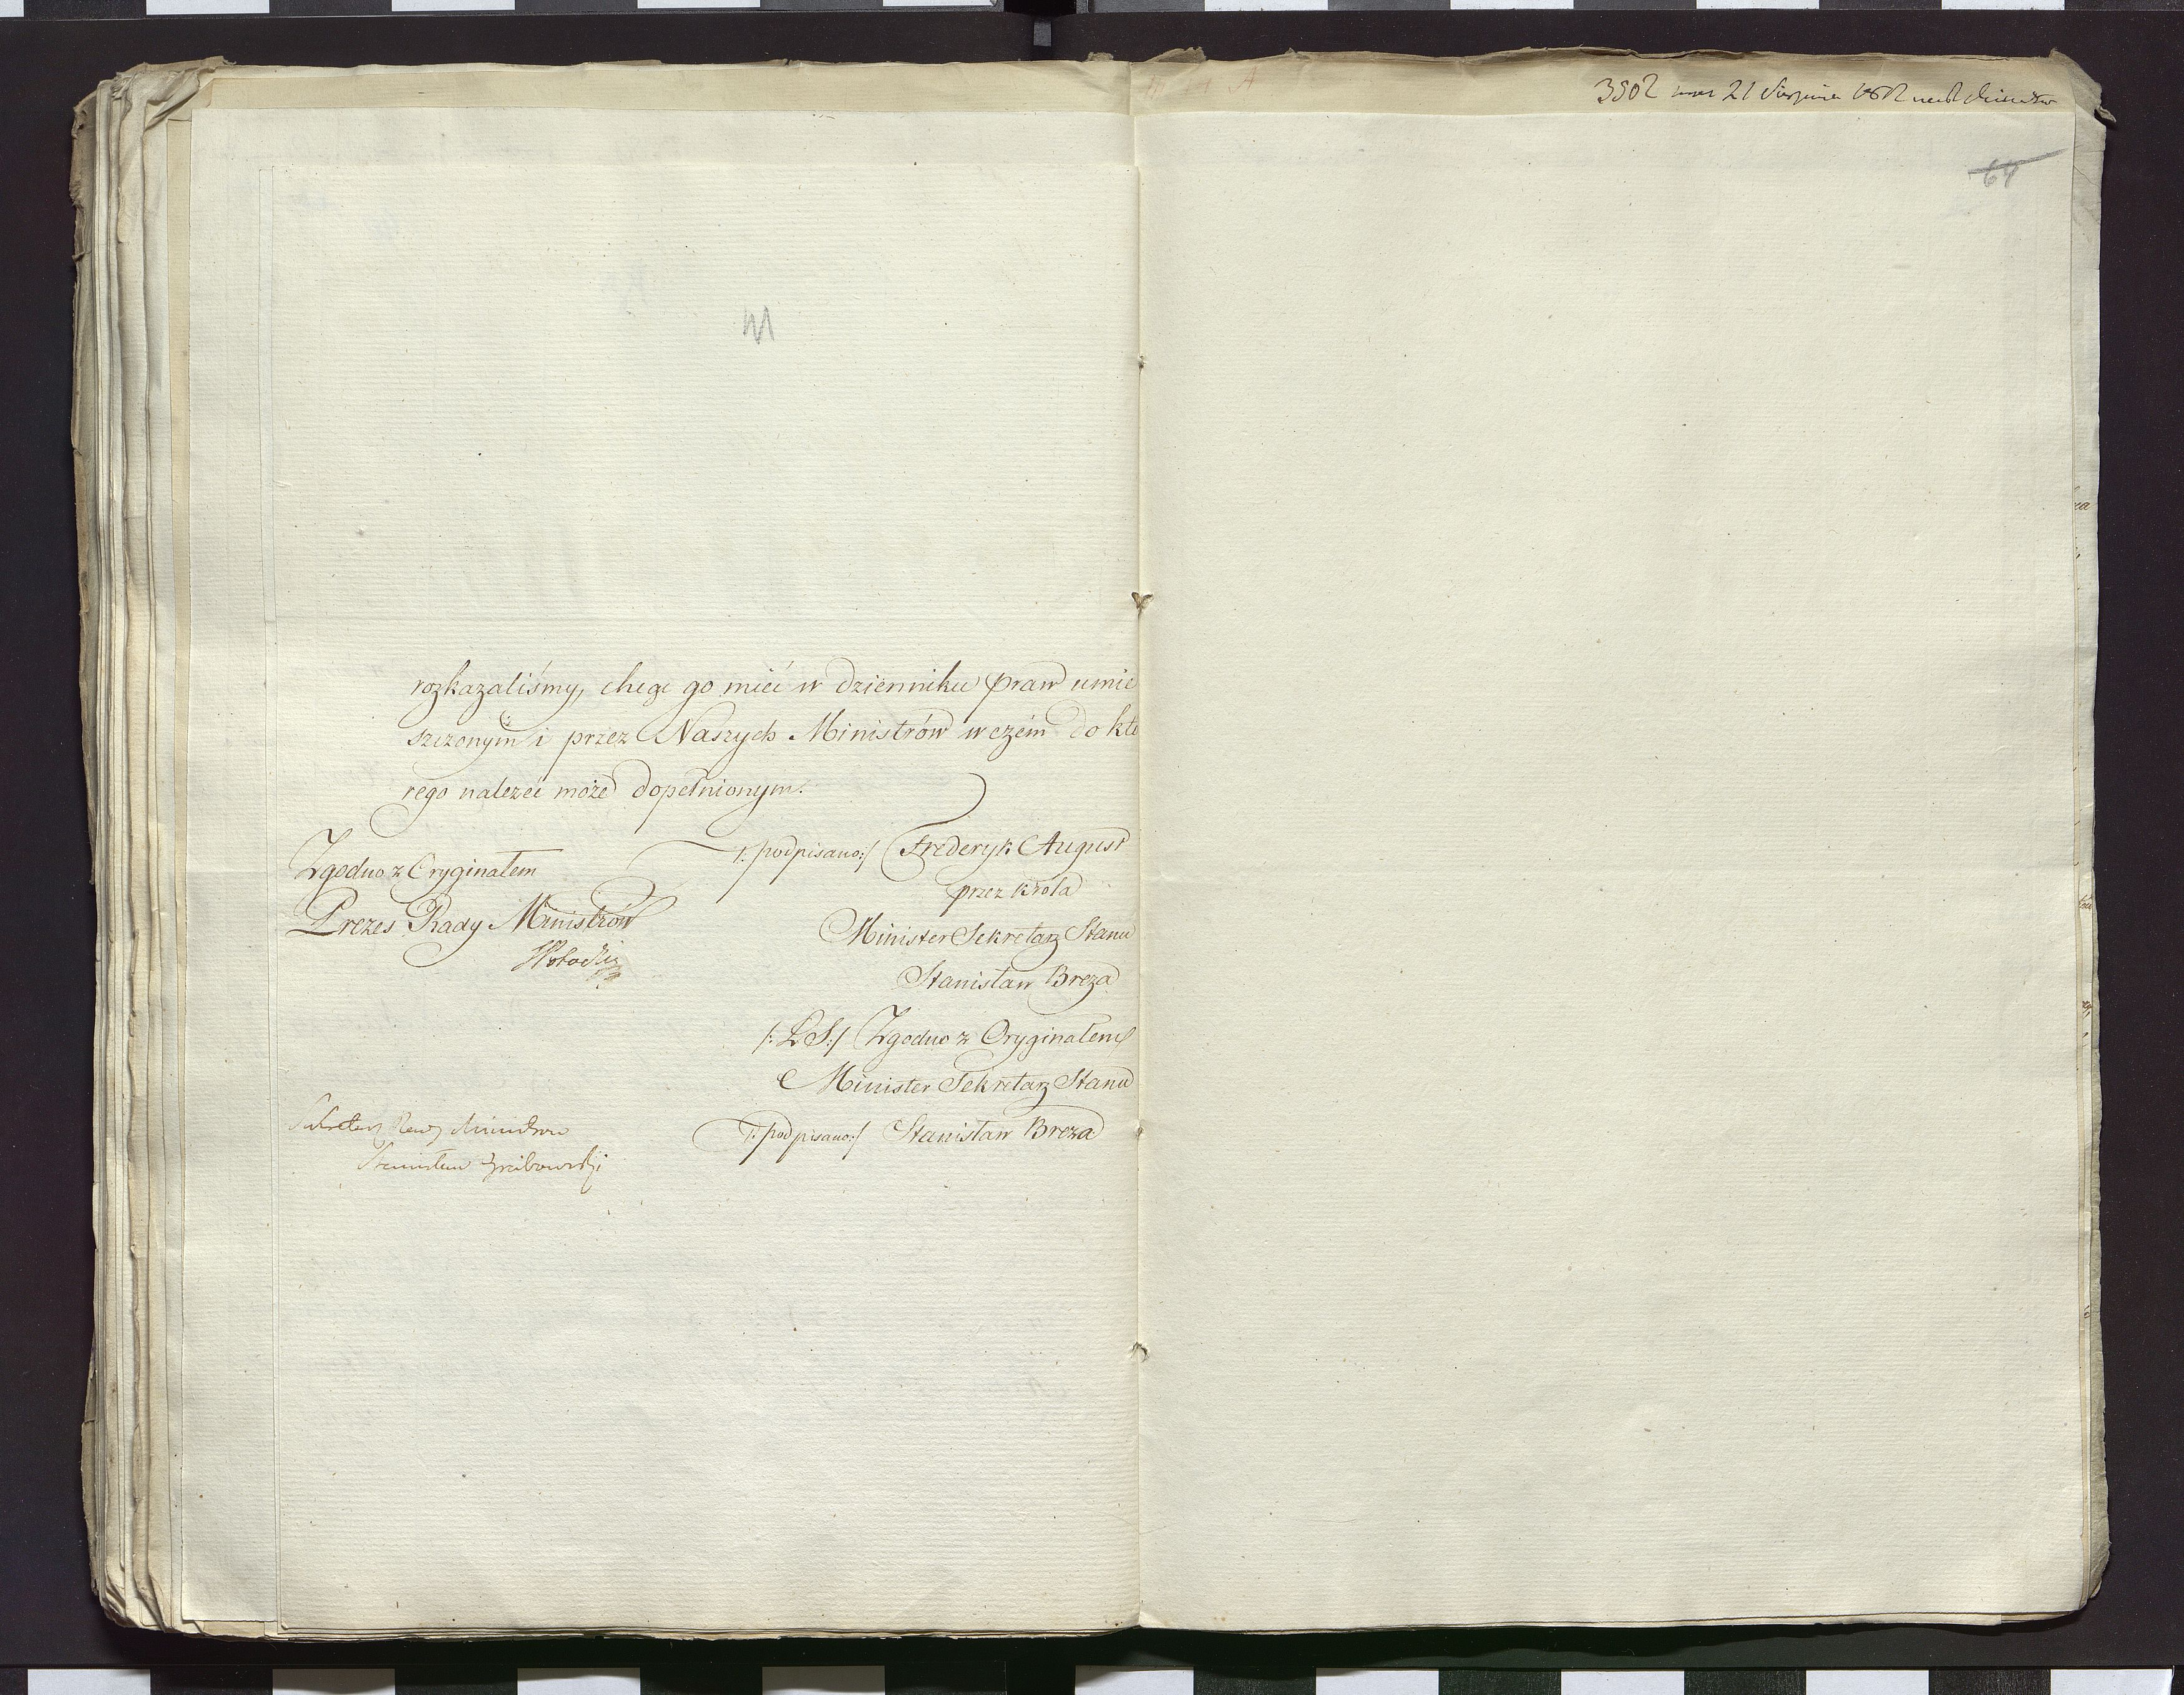 rozkazaliśmy, chcąc go mieć w dzienniku praw umie
szczonym i przez Naszych Ministrów w czém do któ
rego należeć może dopełnionym.
/: podpisano:/ Frederyk August
przez króla
Minister Sekretarz Stanu
Stanisław Breza
/: L S:/ Zgodno z Oryginałem
Minister Sekretarz Stanu
/: podpisano:/ Stanisław Breza
Zgodno z Oryginałem
Prezes Rady Ministrów
SPotocki
Sekretarz Rady Ministrow
Stanisław Grabowski
3502 21 Sierpnia
64